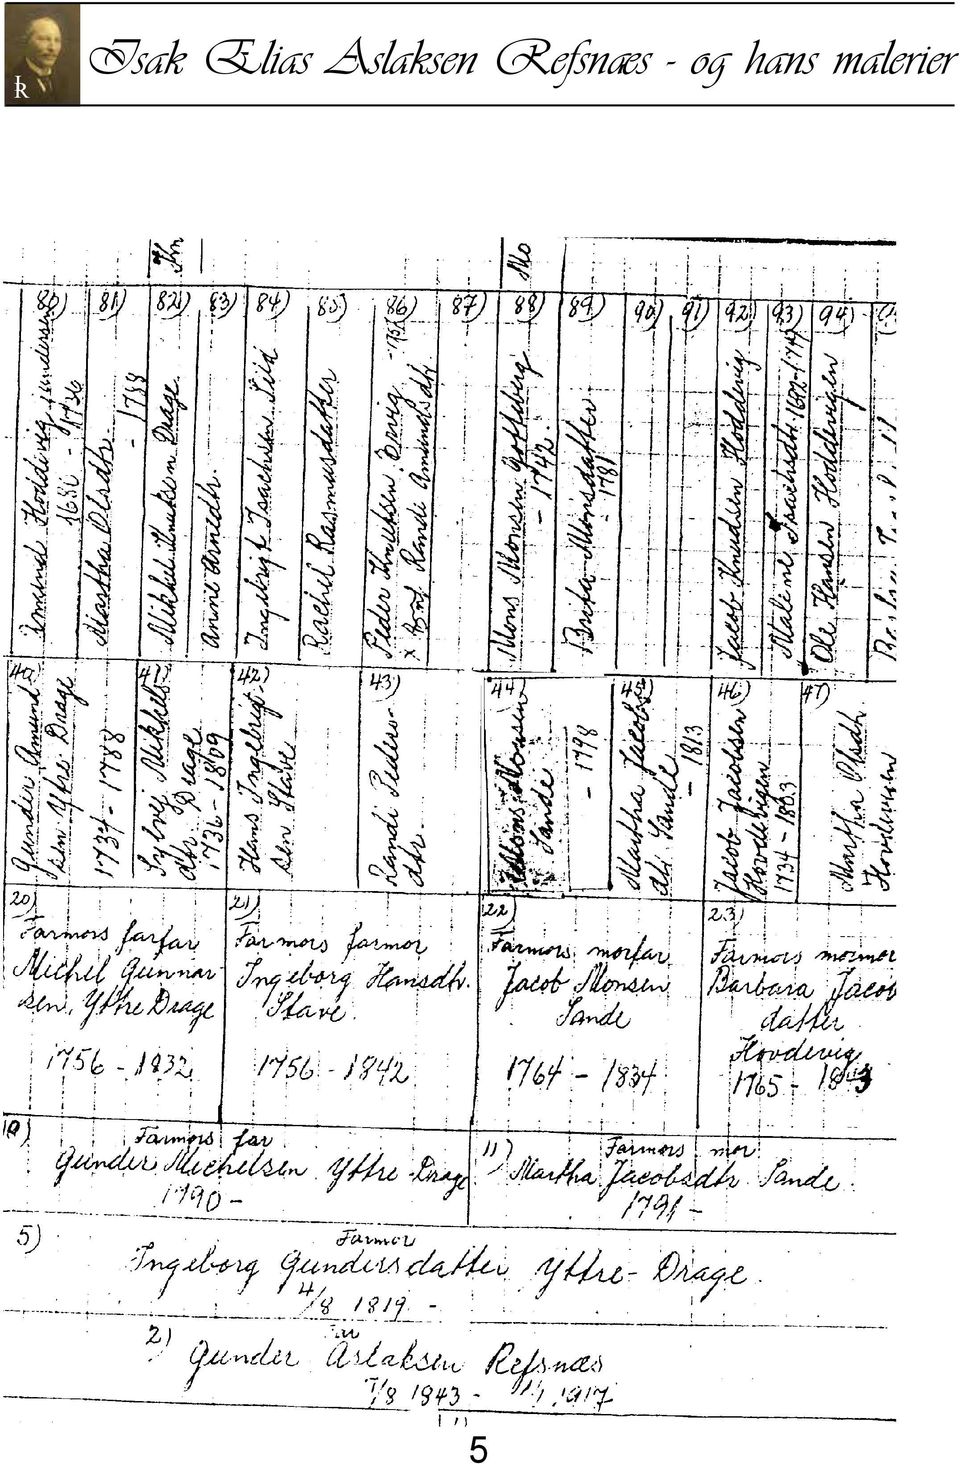 Isak Elias Aslaksen Refsnæs - og hans malerier
IR
Kn
Mo
80) 81) 82) 83) 84) 85) 86) 87) 88) 89) 90) 91) 92) 93) 94)
Hoddevig Gundersen
1686 - 1736
Olsdtr.
- 1788
Mikkel Knuksen Drage
Anne Arnedtr.
Ingebrigt Isachsen Liid
Rachel Rasmusdatter
Peder Knuksen Ørvig
x Randi Amundsdtr
Mons Monsen Gotteberg
- 1742.
Brita Monsdatter
- 1781
Jacob Knudsen Hoddevig
Malene Isachsdtr. 1682-1747
Ole Hansen Hoddevigen
40)
Gunder Amund
sen Yttre Drage
1734 - 1788
41)
Sylvej Mikkels
dtr Drage
1736 - 1809
42)
Hans Ingebrigt-
sen Stave
43)
Randi Peders-
dtr.
44)
Mons Monsen
Sande
- 1798
45)
Martha Jacobs
dtr Sande
- 1813
46)
Jacob Jacobsen
Hovdevigen
1734 - 1803
47)
Martha Olsdtr
Hovdevigen
20)
Farmors farfar
Michel Gunnar
sen, Yttre Drage
1756 - 1832
21)
Farmors farmor
Ingeborg Hansdtr.
Stave
1756 - 1842
22)
Farmors morfar
Jacob Monsen
Sande
1764 - 1834
23)
Farmors mormor
Barbara Jacob
datter
Hovdevig
1765 -
10)
Farmors far
Gunder Michelsen Yttre-Drage
1790 -
11)
Farmors mor
Martha Jacobsdtr Sande
1791 -
5)
Farmor
Ingeborg Gundersdatter Yttre-Drage
4/8 1819 -
2)
Far
Gunder Aslaksen Refsnæs
7/8 1843 - 1/1 1917
5